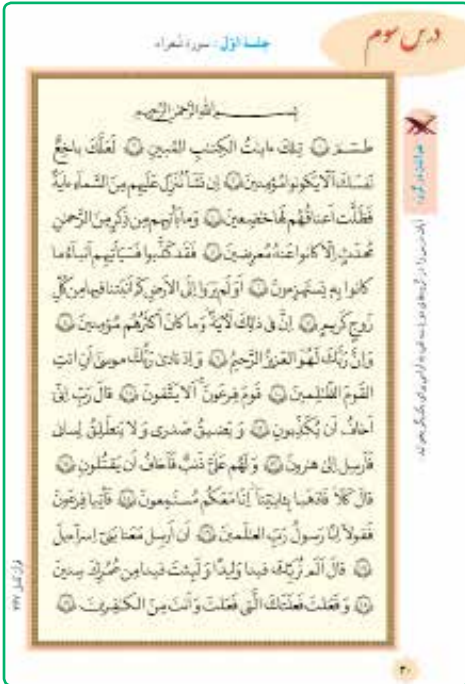 درس سوم
جلسهٔ اوّل : سورهٔ شعراء
بسم الله الرحمن الرحیم
طسم ۝۱ تلك ءايت الكتب المبين ۝۲ لعلك بخع
نفسك ألا يكونوا مؤمنين ۝۳ إن نشأ ننزل عليهم من السماء ءاية
فظلت أعناقهم لها خضعين ۝۴ وما يأتيهم من ذكر من الرحمن
محدث إلا كانوا عنه معرضين ۝۵ فقد كذبوا فسيأتيهم أنباء ما
كانوا به يستهزءون ۝۶ أولم يروا إلى الأرض كم أنبتنا فيها من كل
زوج كريم ۝۷ إن في ذلك لآية وما كان أكثرهم مؤمنين ۝۸
وإن ربك لهو العزيز الرحيم ۝۹ وإذ نادى ربك موسى أن ائت
القوم الظلمين ۝۱۰ قوم فرعون ألا يتقون ۝۱۱ قال رب إني
أخاف أن يكذبون ۝۱۲ ويضيق صدري ولا ينطلق لساني
فأرسل إلى هرون ۝۱۳ ولهم علي ذنب فأخاف أن يقتلون ۝۱۴
قال كلا فاذهبا بايتنا إنا معكم مستمعون ۝۱۵ فأتيا فرعون
فقولا إنا رسول رب العلمين ۝۱۶ أن أرسل معنا بني إسراءيل
۝۱۷ قال ألم نربك فينا وليدا ولبثت فينا من عمرك سنين
۝۱۸ وفعلت فعلتك التي فعلت وأنت من الكفرين ۝۱۹
۳۰